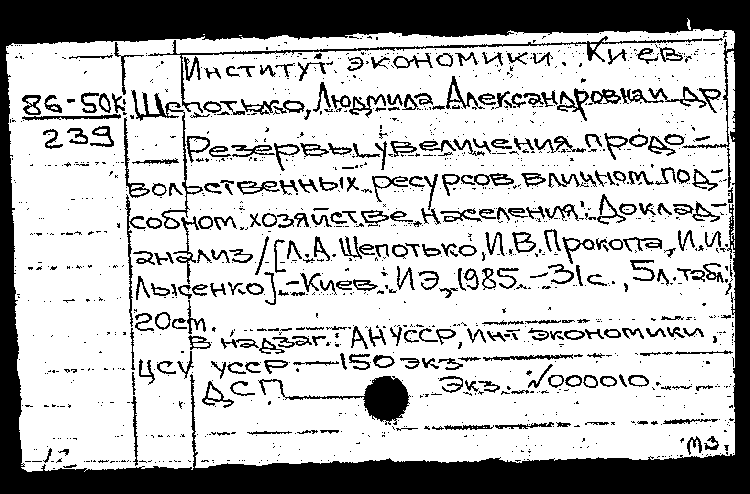 Институт экономики. Киев.
86-50к Щепотько, Людмила Александровна и др.
239
Резервы увеличения продо-
вольственных ресурсов в личном под-
собном хозяйстве населения: Доклад-
анализ / [Л.А. Щепотько, И.В. Прокопа, И.И.
Лысенко]. - Киев: ИЭ, 1985. - 31с., 5л. табл;
20см.
В надзаг.: АН УССР, Ин-т экономики,
ЦСУ УССР. - 150 экз
ДСП Экз. №000010.
12 МЗ.